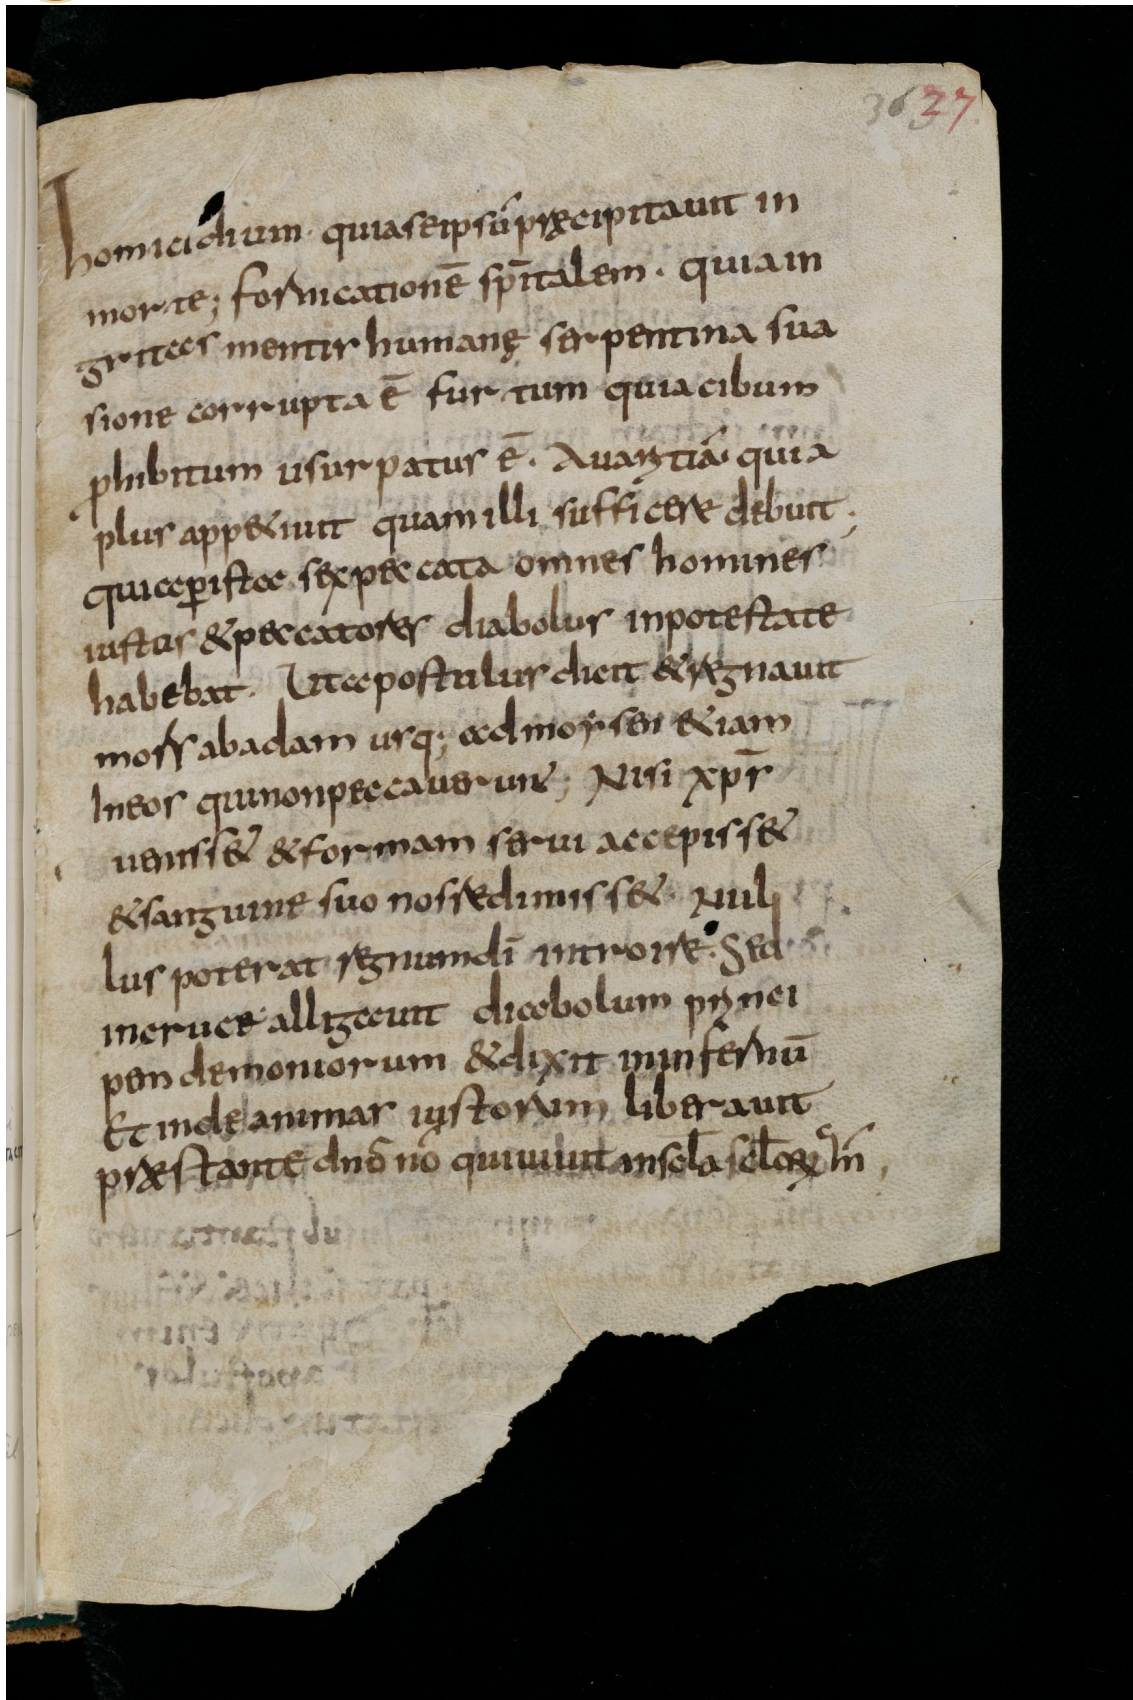 36 37 27
homicidium· quia seipsū precipitauit in
morte; fornicationē sp̄italem· quia in
gritas mentis humanę serpentina sua
sione corrupta ē furtum quia cibum
phibitum usurpatus ē· Auaritiā quia
plus app&iuit quam illi sufficere debuit;
quia p̄ ista sex peccata omnes homines
iustus & peccatores diabolus in potestate
habebat· Ut apostulus dicit & regnauit
mors ab adam usq; ad moysen &iam
In eos qui non peccauerunt; Nisi xp̄s
ueniss& & formam serui accepiss&
& sanguine suo nos redimiss&· Nul
lus poterat regnum dī introire· Sed
in cruce alligauit diabolum princi
pen demoniorum & dixit in infernū
Et inde animas iustorum liberauit
prestante dn̄o nō qui uiuit in scl̄a scl̄orum